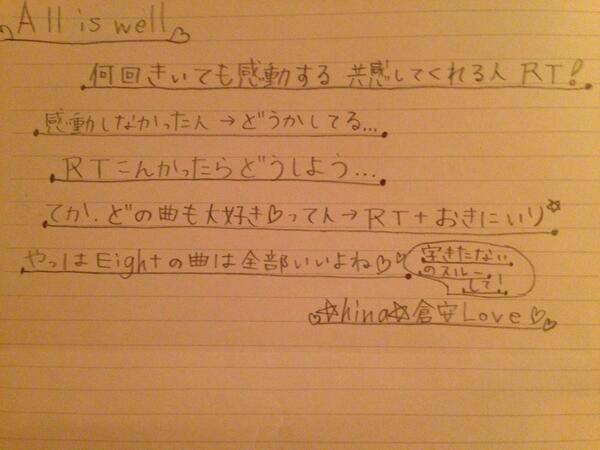 All is well♡
何回きいても感動する 共感してくれる人 RT!
感動しなかった人→どうかしてる...
RTこんかったらどうしよう...
てか.どの曲も大好き♡って人→RT+おきにいり☆
やっぱEightの曲は全部いいよね♡♡
字きたない
のスルー
して!
♡☆hina☆倉安Love♡♡